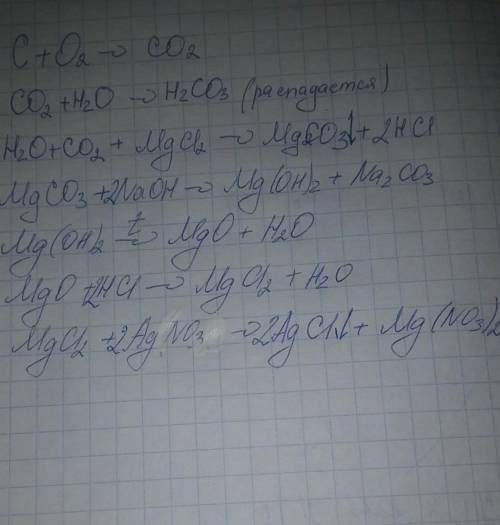 C + O2 → CO2
CO2 + H2O → H2CO3 (распадается)
H2O + CO2 + MgCl2 → MgCO3↓ + 2HCl
MgCO3 + 2NaOH → Mg(OH)2 + Na2CO3
Mg(OH)2 t→ MgO + H2O
MgO + 2HCl → MgCl2 + H2O
MgCl2 + 2AgNO3 → 2AgCl↓ + Mg(NO3)2